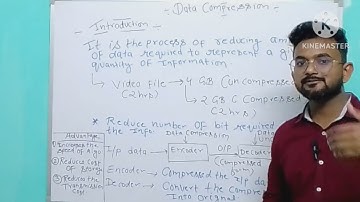 - Data Compression -
- Introduction -
It is the process of reducing am
of data required to represent a gi
quantity of Information.
→ Video File → 4 GB (Un compressed
(2 hrs)
→ 2 GB (Compressed
(2 hrs)
* Reduce Number OF bit required
the Info.
Data Compression
I/p data → Encoder → O/P
(Compressed
Encoder → Compressed the I/p da
Decoder → Convert the Compre
Into original
Advantage
① Increases the
Speed of Algo
② Reduced Cost
of Storage
③ Reduces the
Transmission
Cost
KINEMASTER